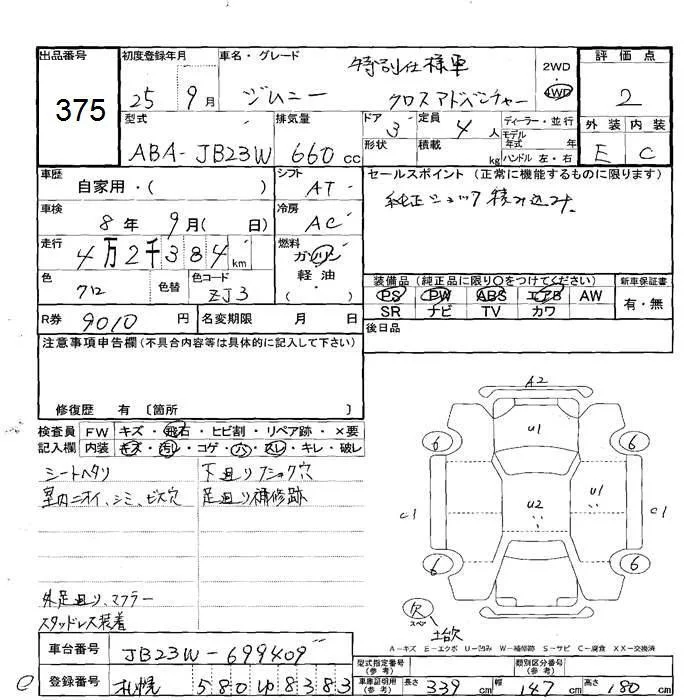 出品番号
375
初度登録年月
25 9月
車名・グレード
特別仕様車
ジムニー クロスアドベンチャー
2WD
・
4WD
評価点
2
外装 内装
E C
型式
ABA-JB23W
排気量
660cc
ドア
3
定員
4人
形状
積載
kg
ディーラー・並行
モデル
年式 年
ハンドル 左・右
車歴
自家用・( )
シフト
AT
車検
8年 9月( 日)
冷房
AC
走行
4万2千384km
燃料
ガソリン
軽油
( )
色
クロ
色替
色コード
ZJ3
R券
9010円
名変期限 月 日
セールスポイント(正常に機能するものに限ります)
純正ショック積み込み.
装備品(純正品に限り○をつけてください)
PS PW ABS エアB AW
SR ナビ TV カワ
新車保証書
有・無
後日品
注意事項申告欄(不具合内容等は具体的に記入して下さい)
修復歴 有 〔箇所 〕
検査員
記入欄
FW キズ・飛石・ヒビ割・リペア跡・×要
内装 キズ・汚レ・コゲ・穴・スレ・キレ・破レ
シートヘタリ
室内ニオイ、シミ、ビス穴
下廻りフック穴
足廻り補修跡
外足廻り、マフラー
スタッドレス装着
車台番号
JB23W-699409
登録番号
札幌 580ゆ8383
A2
U1
6 6
U2
U1
C1 C1
6 6
欠
スペア
工具欠
A-キズ E-エクボ U-凹み W-補修跡 S-サビ C-腐食 XX-交換済
型式指定番号
(参考)
類別区分番号
(参考)
車庫証明用
(参考)
長さ 339cm
幅 147cm
高さ 180cm